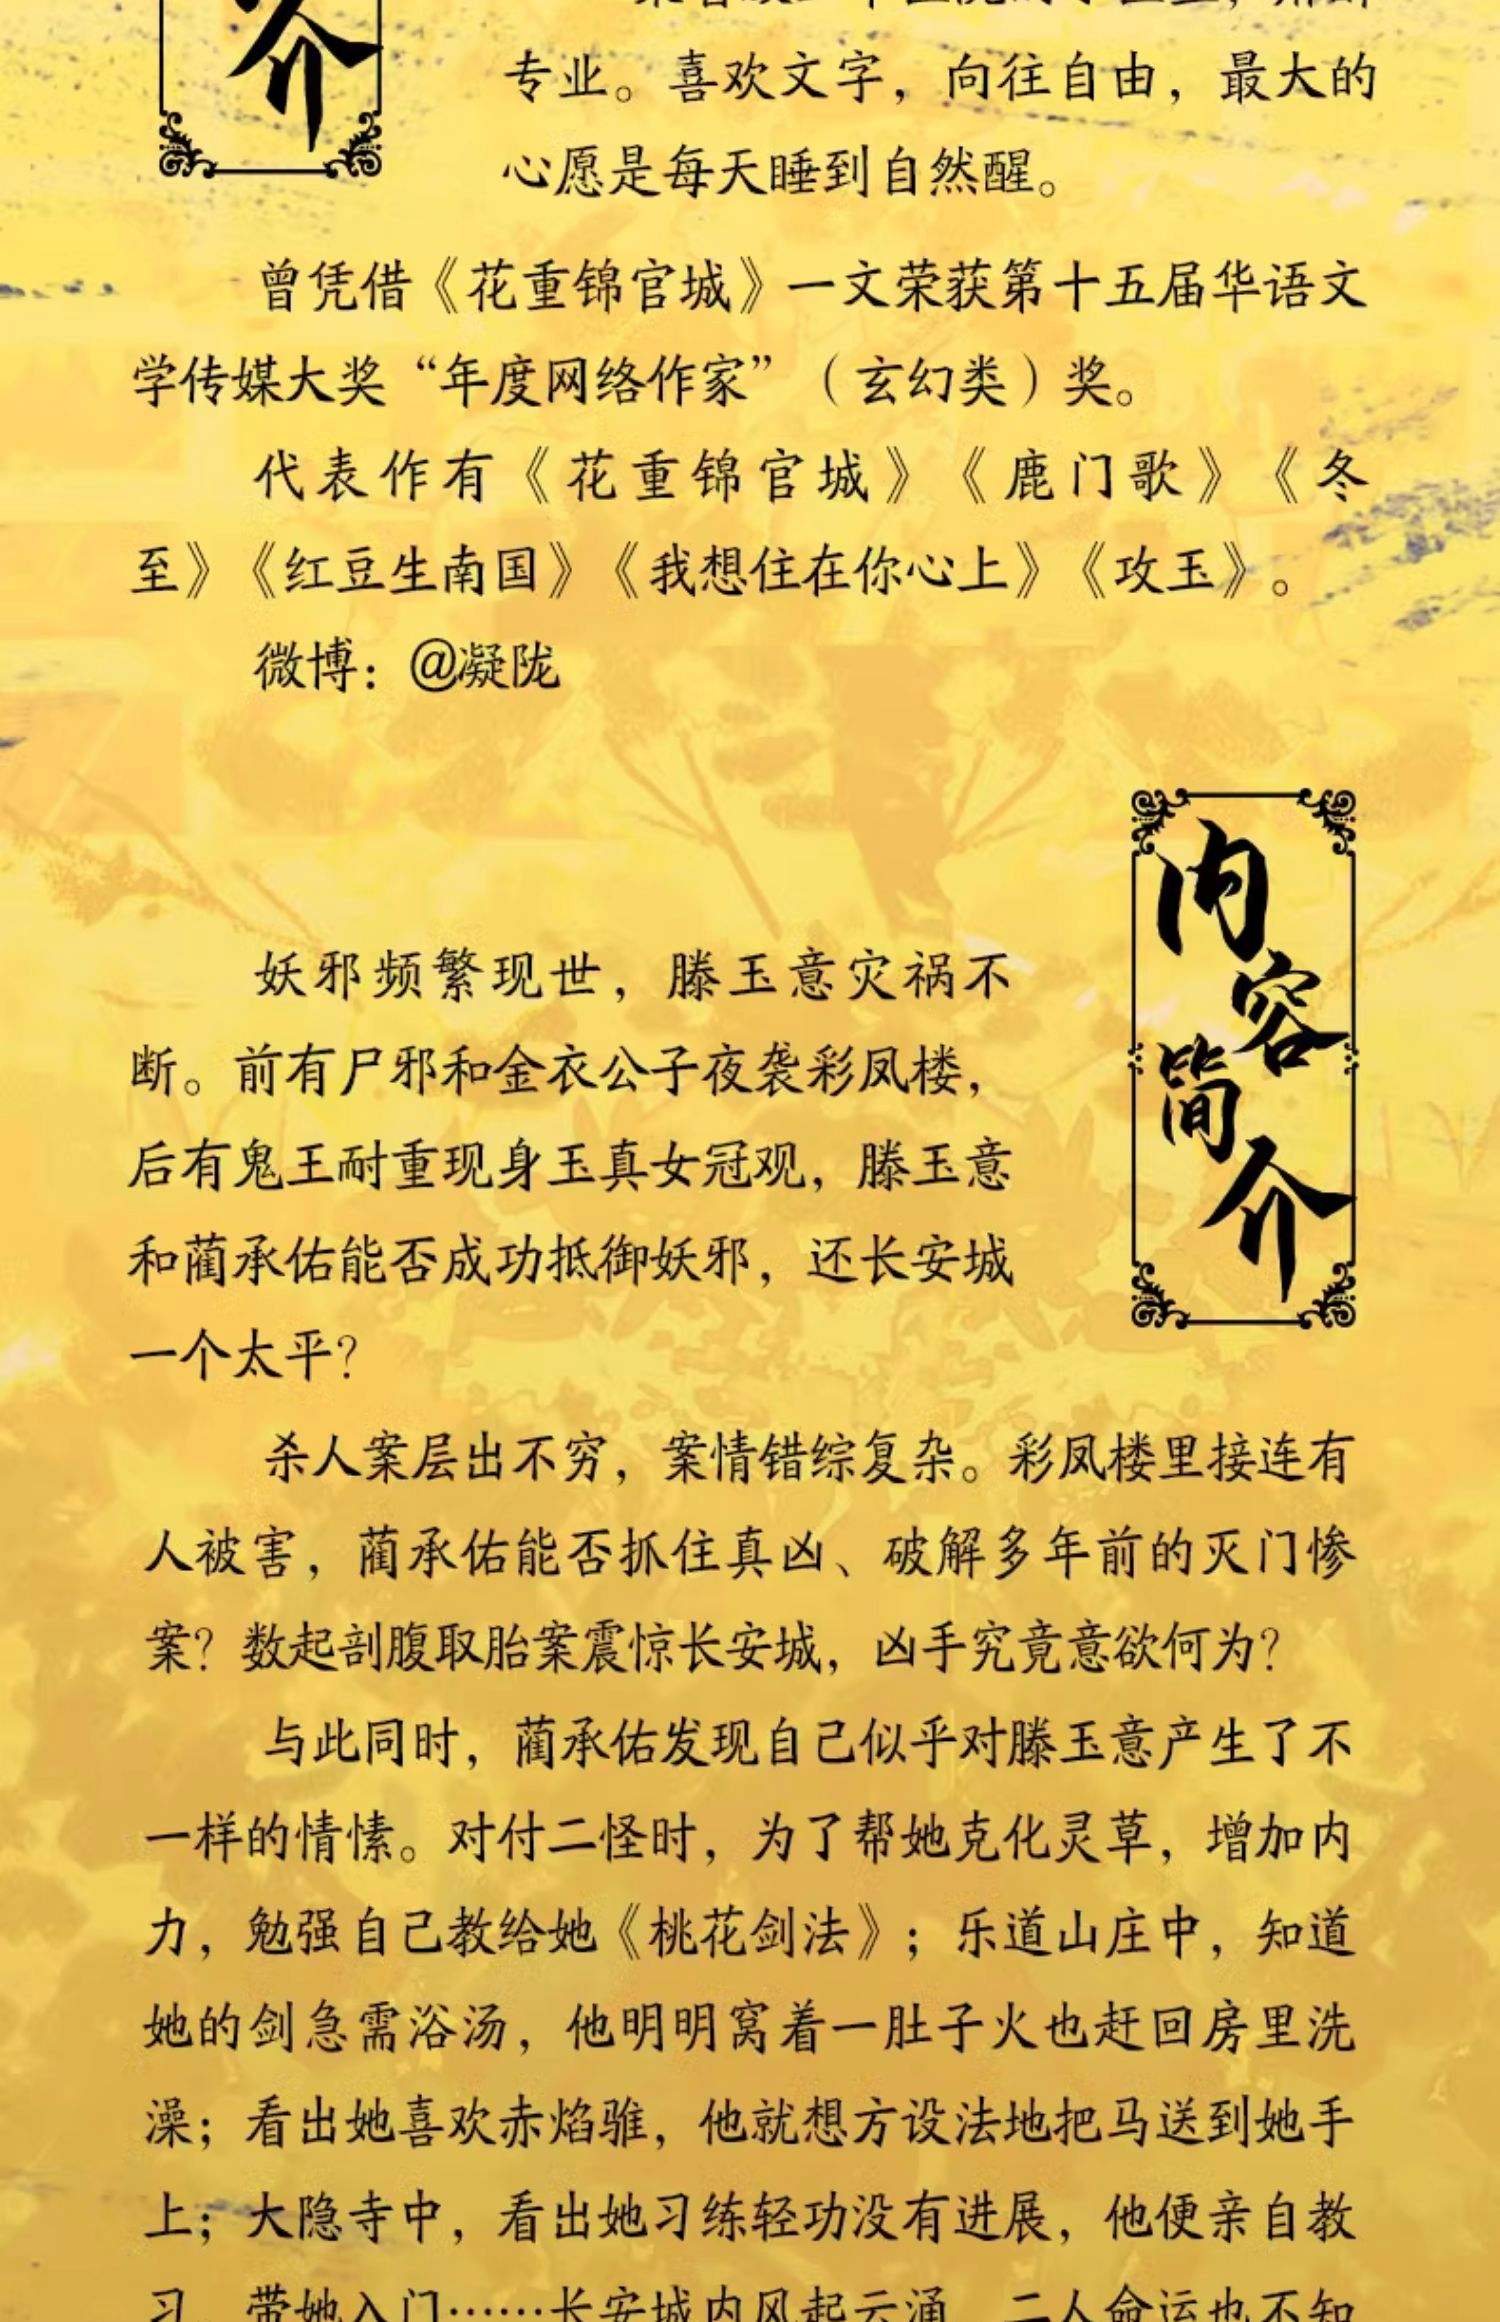 介
专业。喜欢文字，向往自由，最大的
心愿是每天睡到自然醒。
曾凭借《花重锦官城》一文荣获第十五届华语文
学传媒大奖“年度网络作家”（玄幻类）奖。
代表作有《花重锦官城》《鹿门歌》《冬
至》《红豆生南国》《我想住在你心上》《攻玉》。
微博：@凝陇
内容简介
妖邪频繁现世，滕玉意灾祸不
断。前有尸邪和金衣公子夜袭彩凤楼，
后有鬼王耐重现身玉真女冠观，滕玉意
和蔺承佑能否成功抵御妖邪，还长安城
一个太平？
杀人案层出不穷，案情错综复杂。彩凤楼里接连有
人被害，蔺承佑能否抓住真凶、破解多年前的灭门惨
案？数起剖腹取胎案震惊长安城，凶手究竟意欲何为？
与此同时，蔺承佑发现自己似乎对滕玉意产生了不
一样的情愫。对付二怪时，为了帮她克化灵草，增加内
力，勉强自己教给她《桃花剑法》；乐道山庄中，知道
她的剑急需浴汤，他明明窝着一肚子火也赶回房里洗
澡；看出她喜欢赤焰骓，他就想方设法地把马送到她手
上；大隐寺中，看出她习练轻功没有进展，他便亲自教
习，带她入门……长安城内风起云涌，二人命运也不知